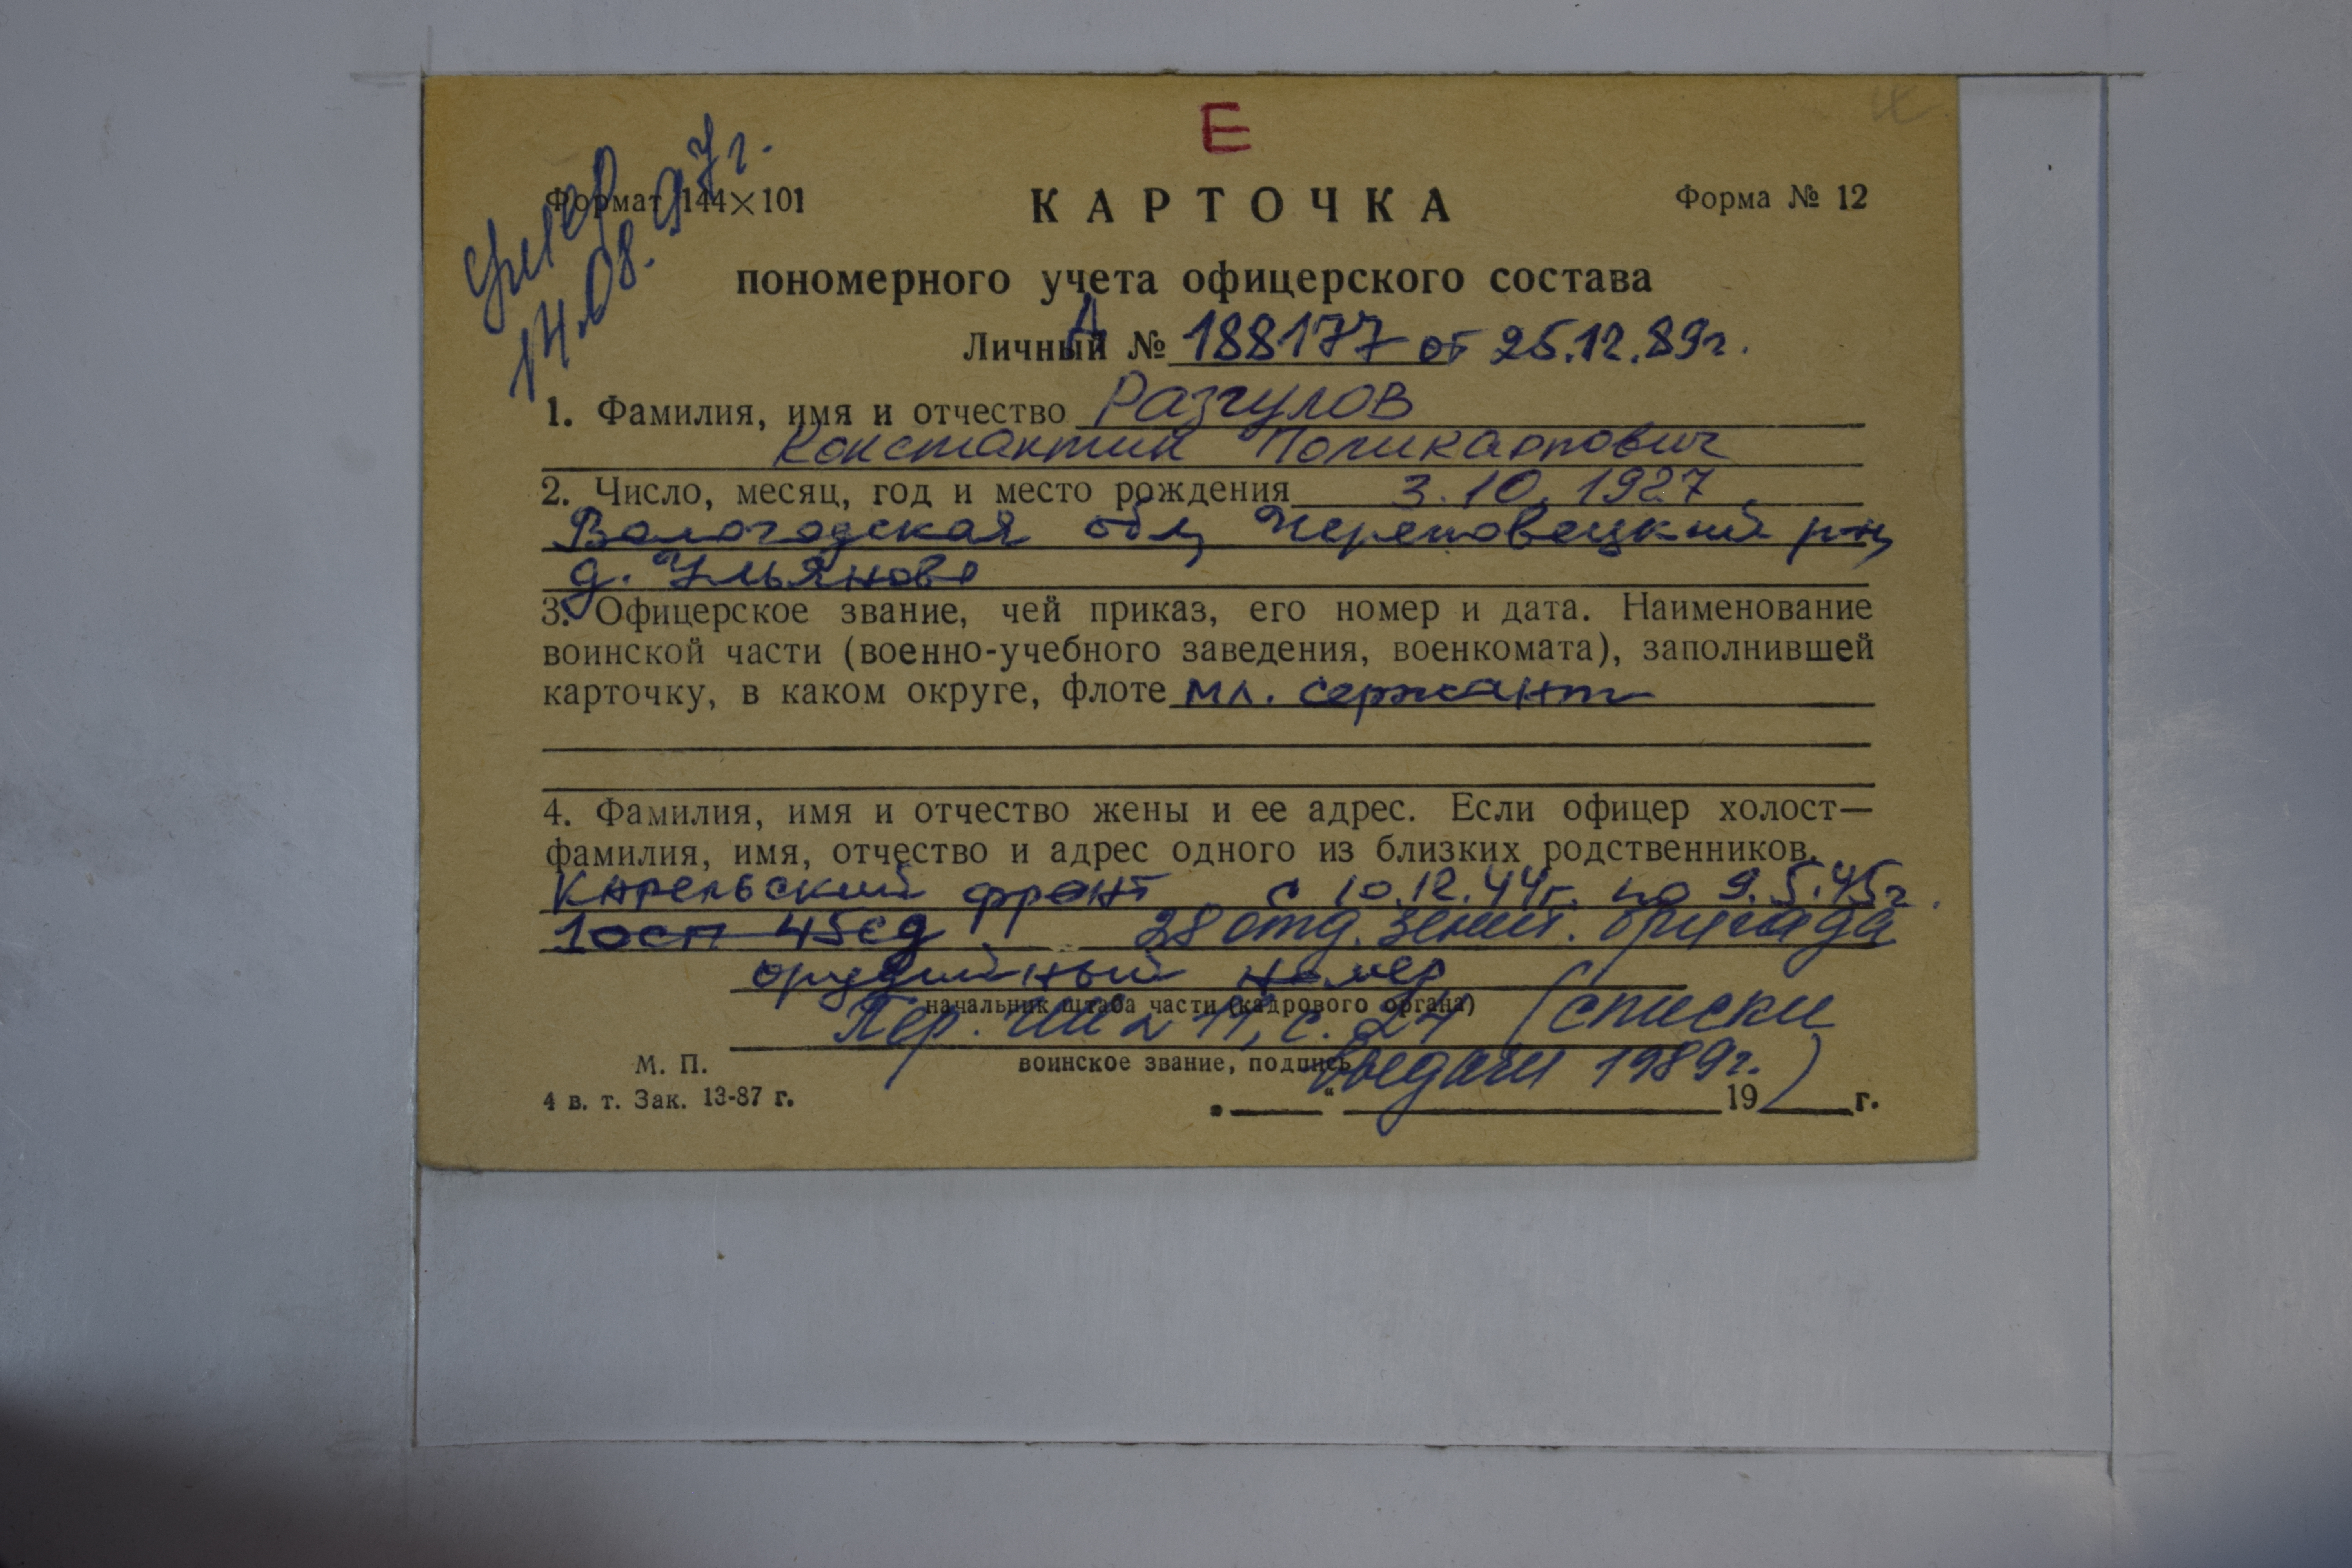 Е
Формат 144×101
Форма № 12
умер
14.08.97г.
КАРТОЧКА
пономерного учета офицерского состава
Личный № Д 188177 от 25.12.89г.
1. Фамилия, имя и отчество Разгулов
Константин Поликарпович
2. Число, месяц, год и место рождения 3.10.1927
Вологодская обл, Череповецкий р-н,
д. Ульяново
3. Офицерское звание, чей приказ, его номер и дата. Наименование
воинской части (военно-учебного заведения, военкомата), заполнившей
карточку, в каком округе, флоте мл. сержант
4. Фамилия, имя и отчество жены и ее адрес. Если офицер холост—
фамилия, имя, отчество и адрес одного из близких родственников.
Карельский фронт с 10.12.44г. по 9.5.45г.
10сп 45сд 28 отд. зенит. бригада
орудийный номер
начальник штаба части (кадрового органа)
Пер. 11, с. 24 (списки
выдачи 1989г.)
М. П.
воинское звание, подпись
4 в. т. Зак. 13-87 г.
„ “ 19 г.